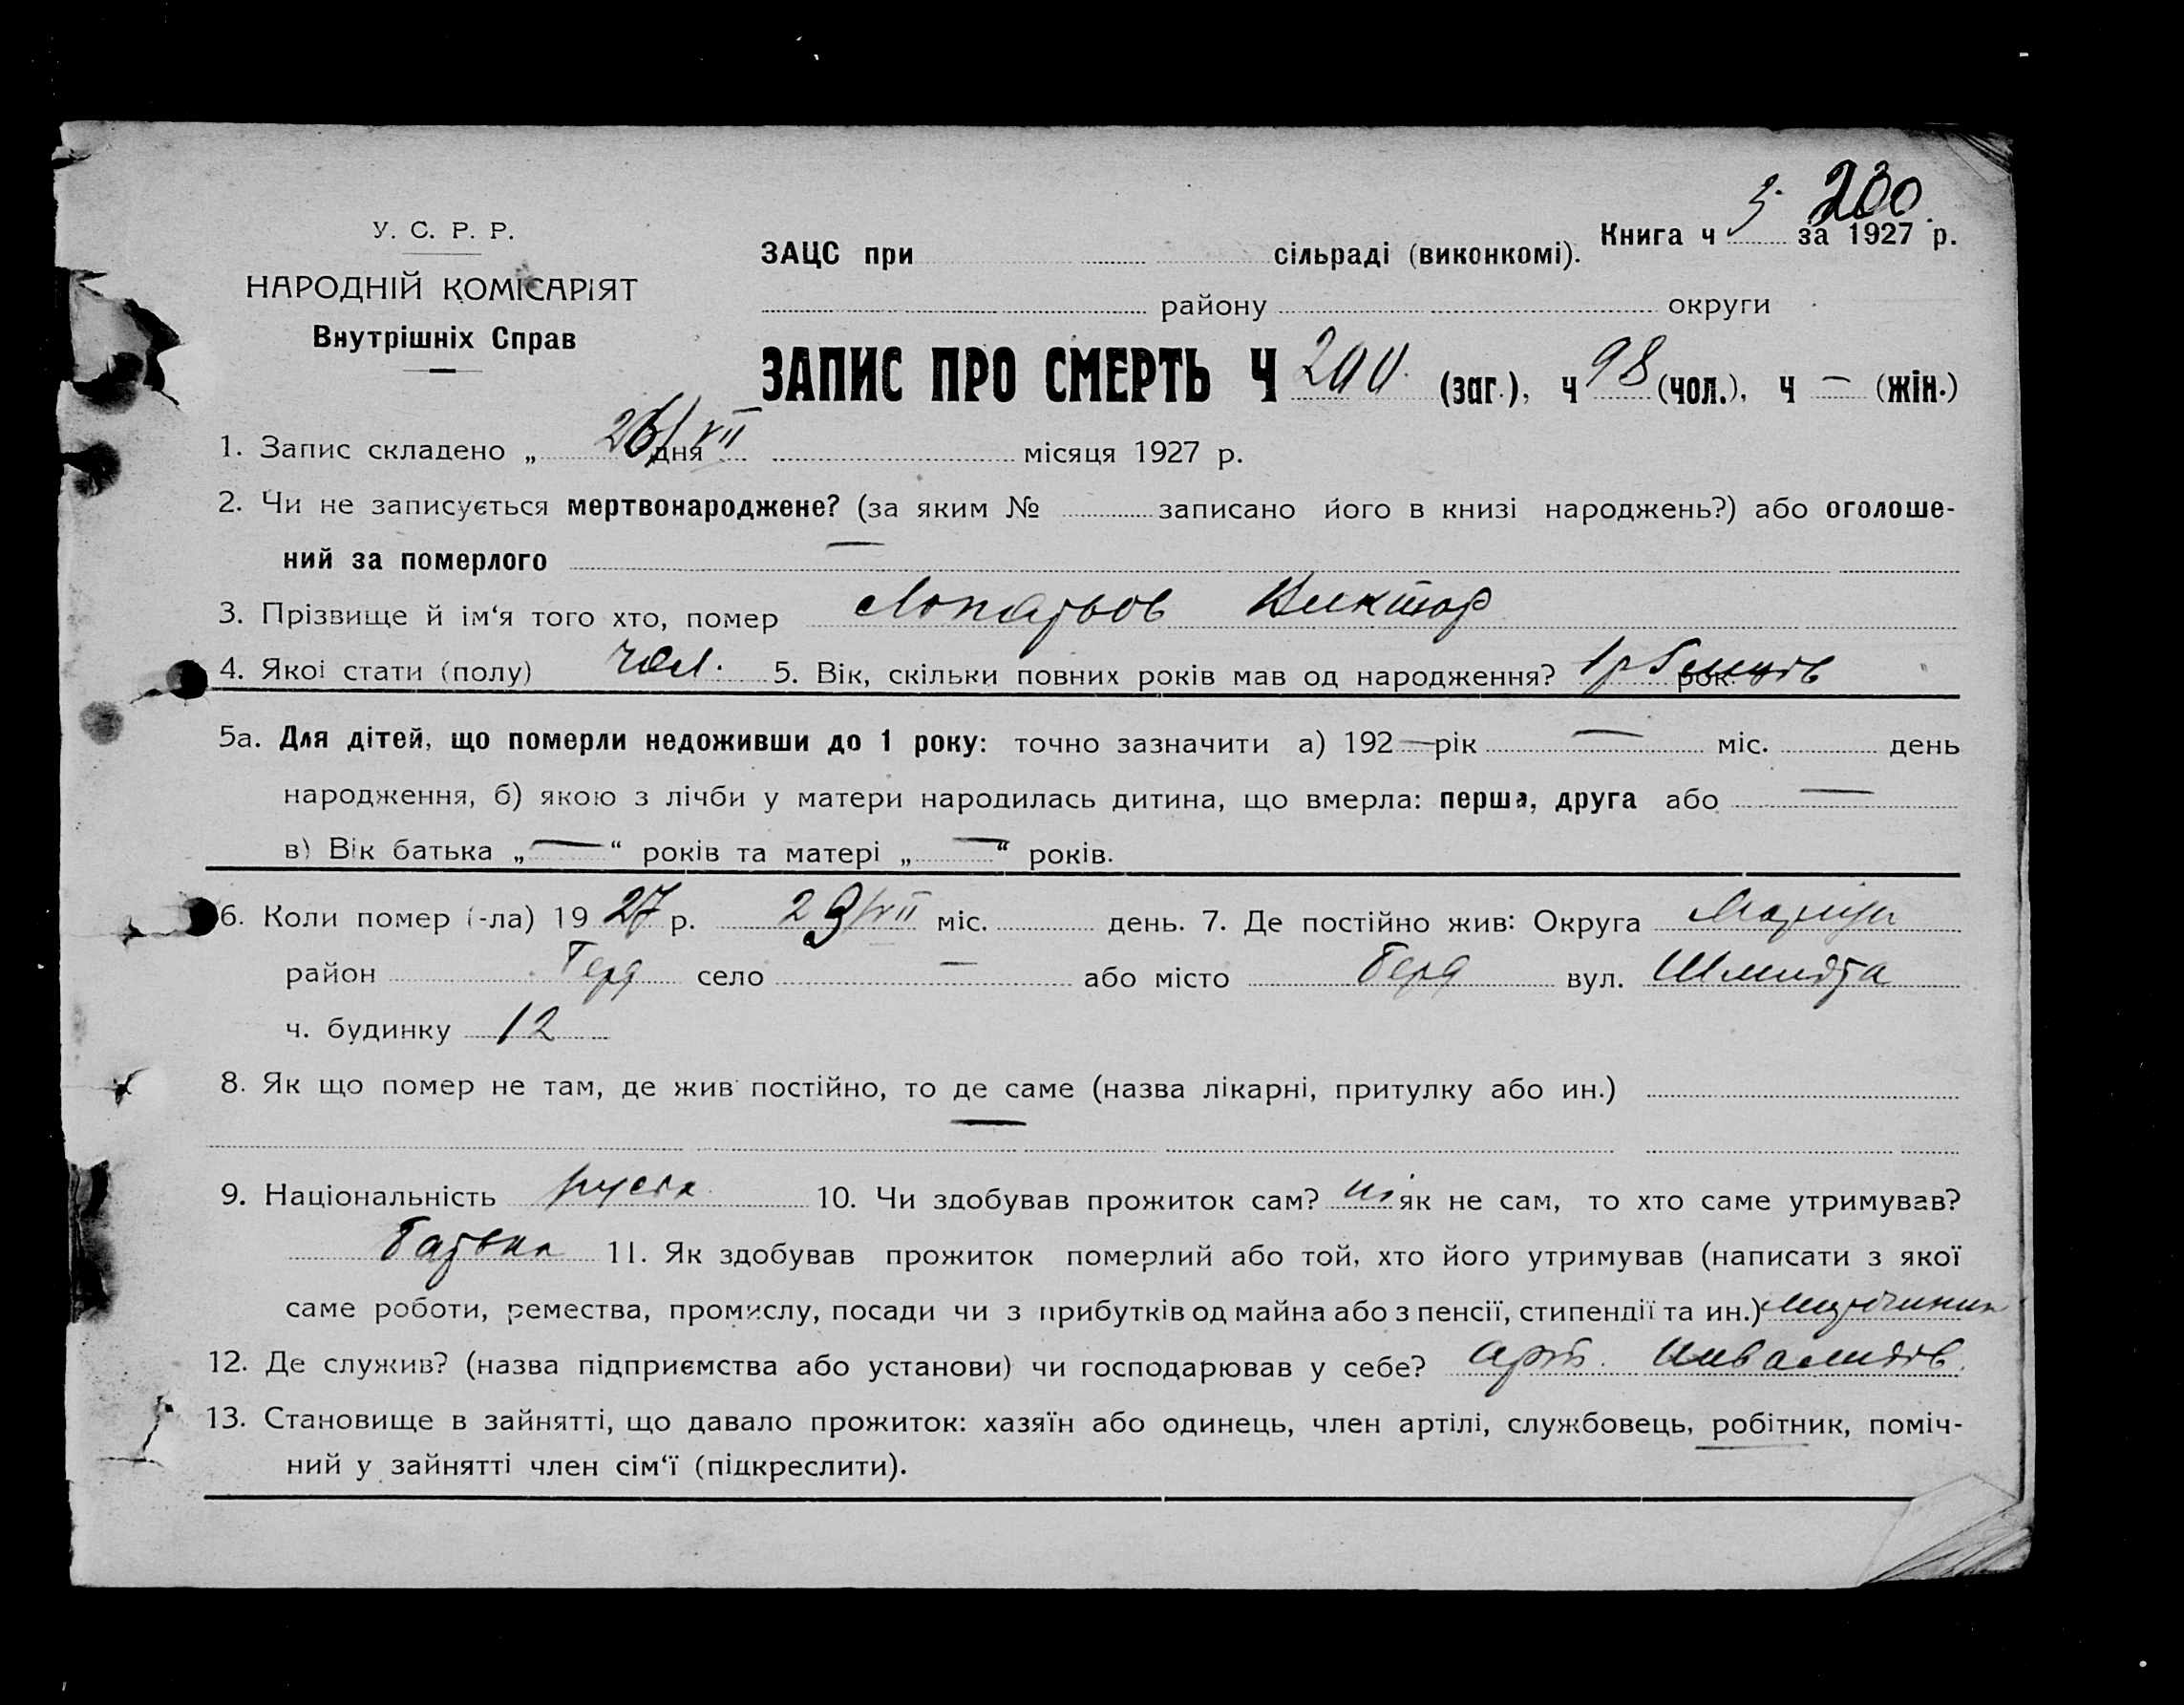 3. 200
У. С. Р. Р.
НАРОДНІЙ КОМІСАРІЯТ
Внутрішніх Справ
Книга ч за 1927 р.
ЗАЦС при сільраді (виконкомі).
району округи
ЗАПИС ПРО СМЕРТЬ Ч 200. (заг.), ч 98 (чол.), ч — (жін.)
1. Запис складено „ 26/VII дня місяця 1927 р.
2. Чи не записується мертвонароджене? (за яким № записано його в книзі народжень?) або оголоше-
ний за померлого —
3. Прізвище й ім‘я того хто, помер Лопатьов Виктор
4. Якої стати (полу) чол. 5. Вік, скільки повних років мав од народження? 1 р 5 рок.
5а. Для дітей, що померли недоживши до 1 року: точно зазначити а) 192— рік — міс. день
народження, б) якою з лічби у матери народилась дитина, що вмерла: перша, друга або —
в) Вік батька „—“ років та матері „—“ років.
6. Коли помер (-ла) 19 27 р. 23/VII міс. день. 7. Де постійно жив: Округа Маріуп
район Берд село — або місто Берд вул. Шмидта
ч. будинку 12
8. Як що помер не там, де жив постійно, то де саме (назва лікарні, притулку або ин.)
—
9. Національність руск. 10. Чи здобував прожиток сам? ні як не сам, то хто саме утримував?
батько 11. Як здобував прожиток померлий або той, хто його утримував (написати з якої
саме роботи, ремества, промислу, посади чи з прибутків од майна або з пенсії, стипендії та ин.)
12. Де служив? (назва підприємства або установи) чи господарював у себе? Арт. Инвалидів.
13. Становище в зайнятті, що давало прожиток: хазяїн або одинець, член артілі, службовець, робітник, поміч-
ний у зайнятті член сім‘ї (підкреслити).